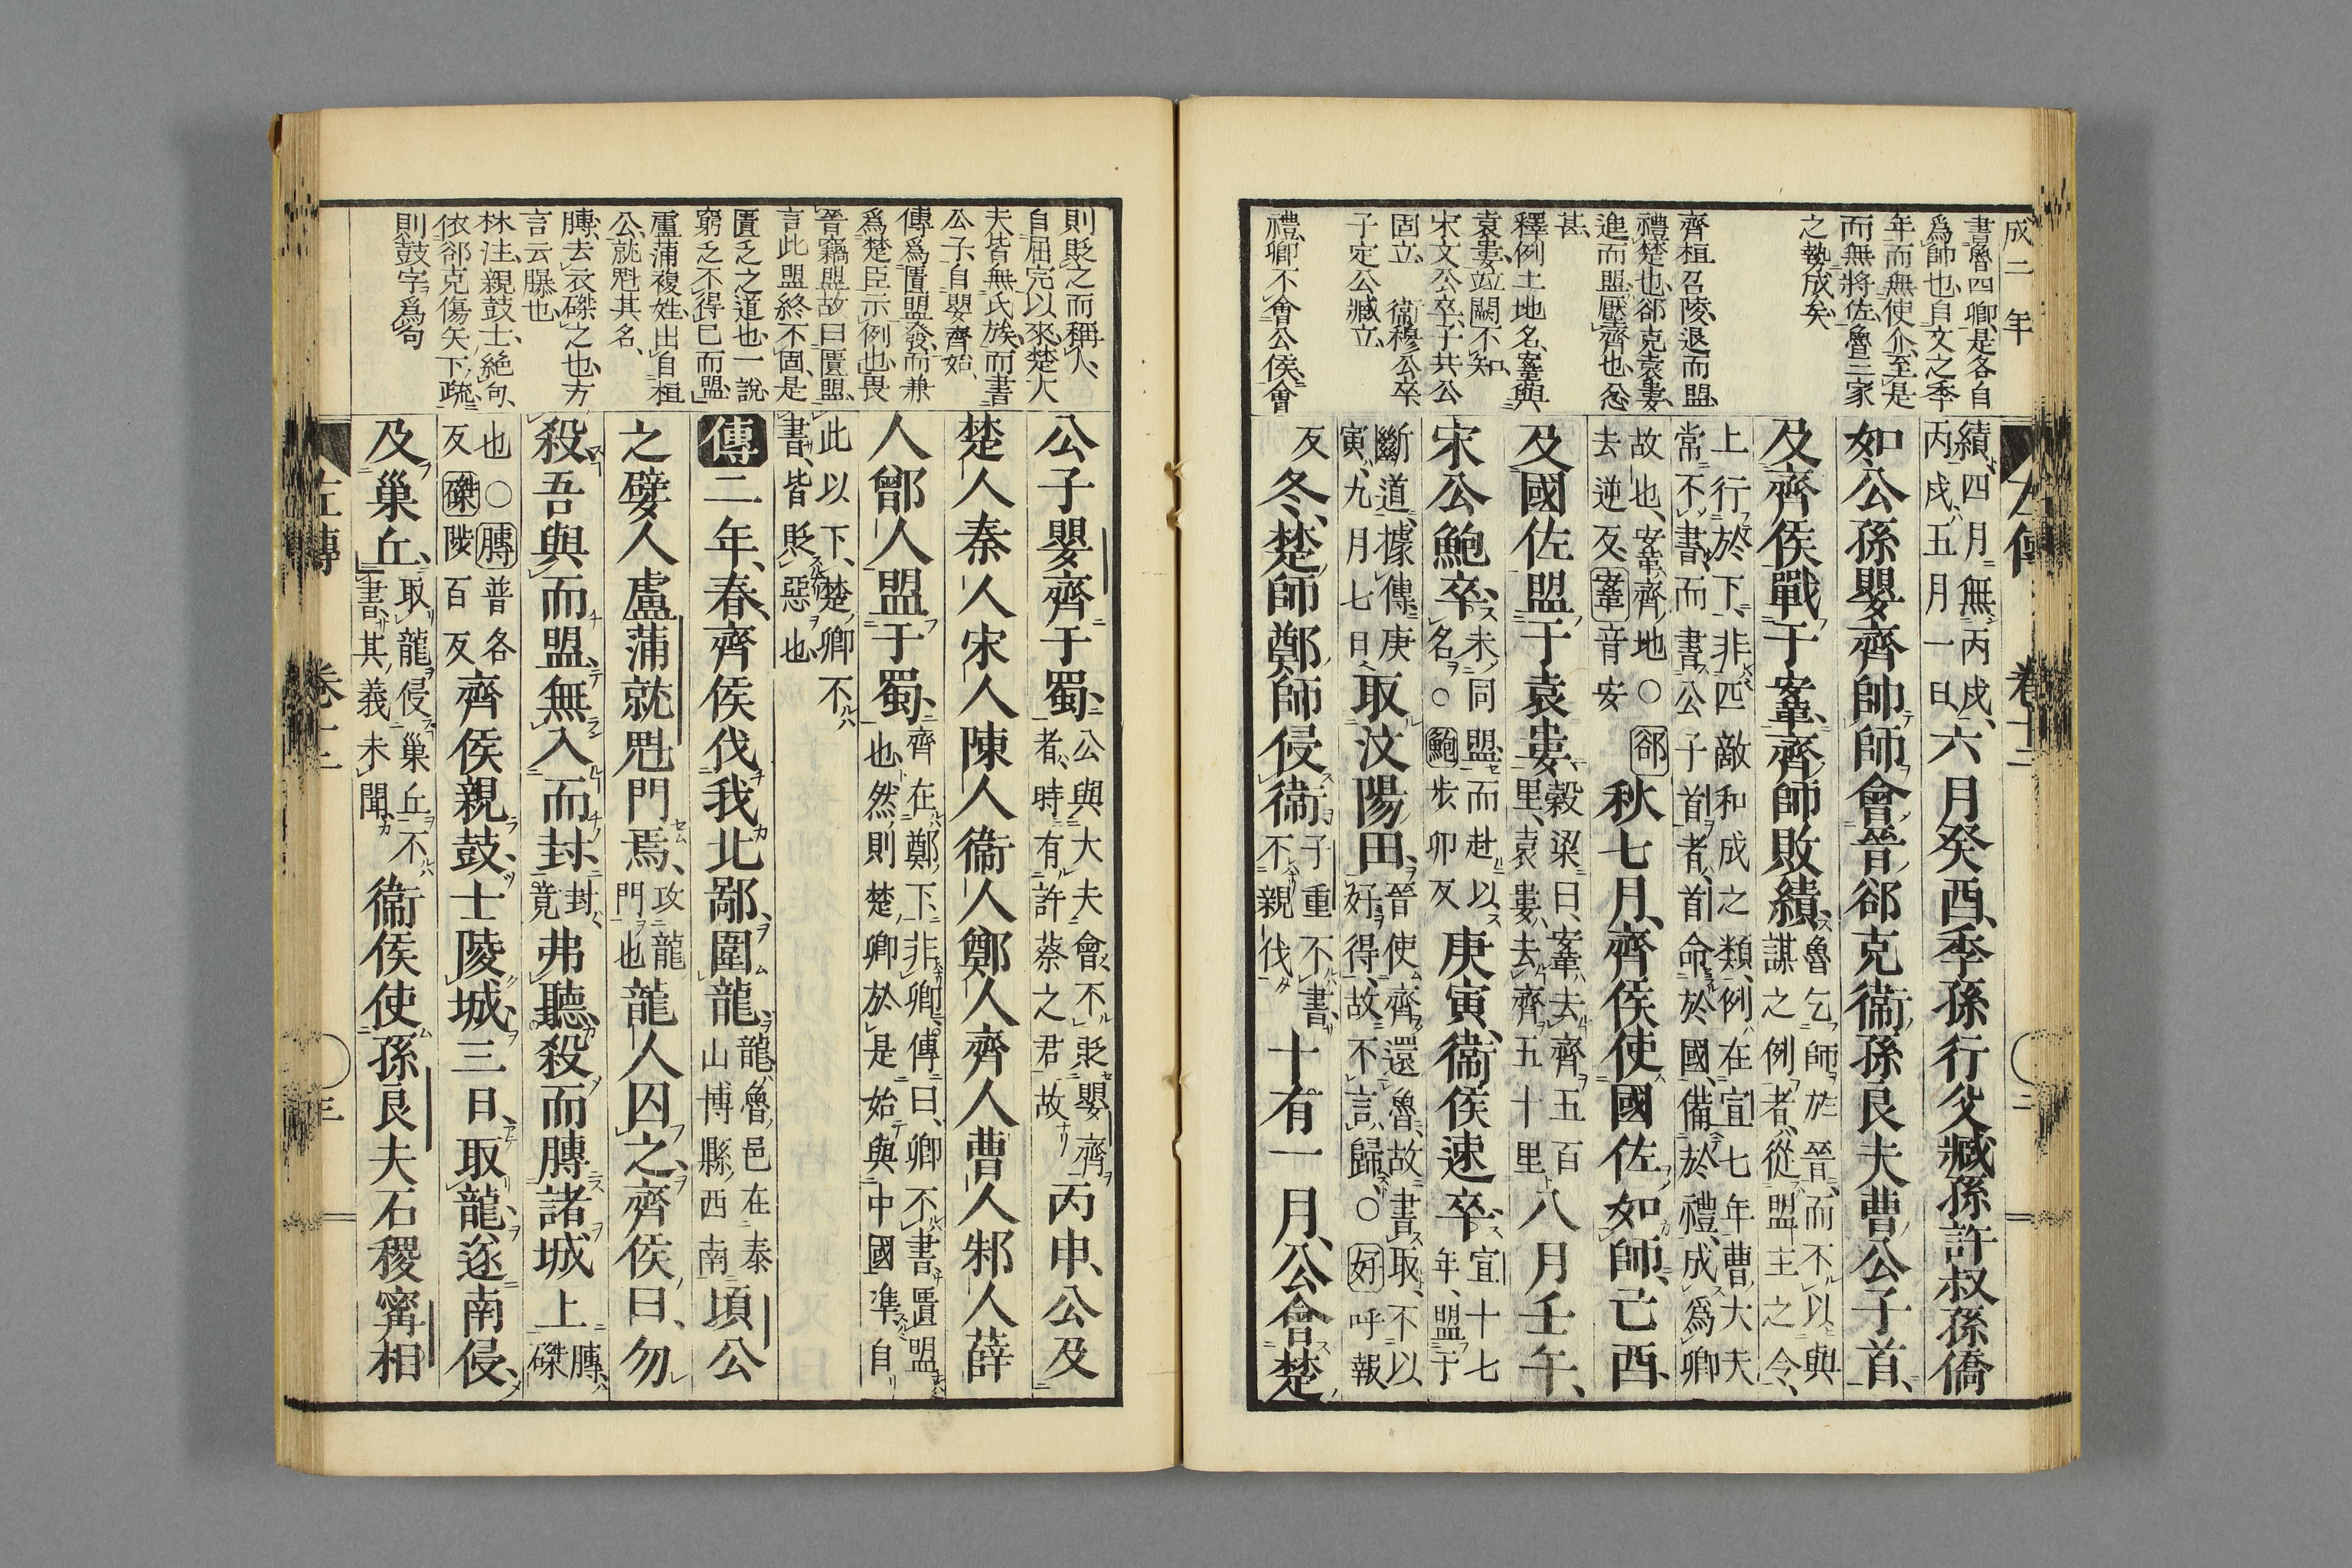 成二年
書魯四卿是各自
爲帥也自文之季
年而無使介至是
而無將佐魯三家
之勢成矣
齊桓召陵退而盟
禮楚也郤克袁婁
進而盟壓齊也忿
甚
釋例土地名鞌與
袁婁竝闕不知
宋文公卒子共公
固立 衞穆公卒
子定公臧立
禮卿不會公侯會
左傳 卷十二 二
績四月無丙戌丙戌五月一日六月癸酉季孫行父臧孫許叔孫僑
如公孫嬰齊帥師會晉郤克衞孫良夫曹公子首
及齊侯戰于鞌齊師敗績魯乞師於晉而不以與謀之例者從盟主之令
上行於下非匹敵和成之類例在宣七年曹大夫常不書而書公子首者首命於國備於禮成爲卿
故也鞌齊地○郤去逆反鞌音安秋七月齊侯使國佐如師己酉
及國佐盟于袁婁穀梁曰鞌去齊五百里袁婁去齊五十里八月壬午
宋公鮑卒未同盟而赴以名○鮑步卯反庚寅衞侯速卒宣十七年盟于
斷道據傳庚寅九月七日取汶陽田晉使齊還魯故書取不以好得故不言歸○好呼報
反冬楚師鄭師侵衞子重不書不親伐十有一月公會楚
則貶之而稱人
自屈完以來楚大
夫皆無氏族而書
公子自嬰齊始
傳爲匱盟發而兼
爲楚臣示例也畏
晉竊盟故曰匱盟
言此盟終不固是
匱乏之道也一說
窮乏不得已而盟
盧蒲複姓出自桓
公就魁其名
膊去衣磔之也方
言云曝也
林注親鼓士絶句
依郤克傷矢下疏
則鼓字爲句
公子嬰齊于蜀公與大夫會不貶嬰齊者時有許蔡之君故丙申公及
楚人秦人宋人陳人衞人鄭人齊人曹人邾人薛
人鄫人盟于蜀齊在鄭下非卿傳曰卿不書匱盟也然則楚卿於是始與中國準自
此以下楚卿不書皆貶惡也
傳二年春齊侯伐我北鄙圍龍龍魯邑在泰山博縣西南頃公
之嬖人盧蒲就魁門焉攻龍門也龍人囚之齊侯曰勿
殺吾與而盟無入而封封竟弗聽殺而膊諸城上膊磔
也○膊普各反磔陟百反齊侯親鼓士陵城三日取龍遂南侵
及巢丘取龍侵巢丘不書其義未聞衞侯使孫良夫石稷甯相
左傳 卷十二 三